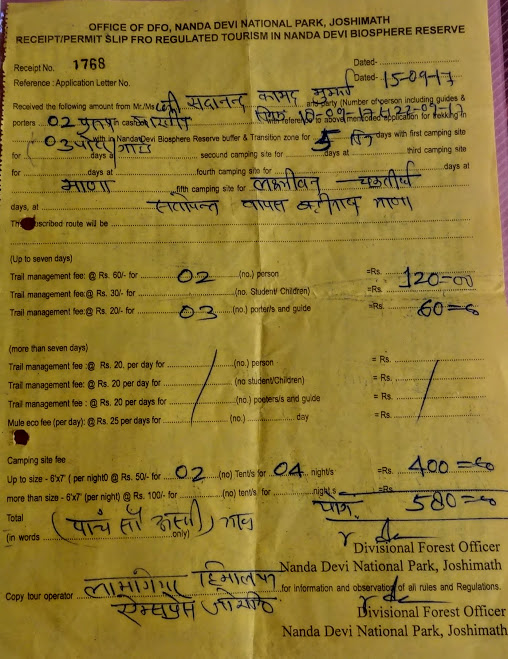 OFFICE OF DFO, NANDA DEVI NATIONAL PARK, JOSHIMATH
RECEIPT/PERMIT SLIP FRO REGULATED TOURISM IN NANDA DEVI BIOSPHERE RESERVE
Receipt No. 1768 Dated-
Reference : Application Letter No. Dated- 15-09-17
Received the following amount from Mr./Ms श्री सदानन्द कामद and party (Number of person including guides &
porters 02 पुरुष in cash
03 with in Nanda Devi Biosphere Reserve buffer & Transition zone for 5 दिन days with first camping site
for days at second camping site for days at third camping site
for days at fourth camping site for days at
माणा fifth camping site for लक्ष्मीवन - चक्रतीर्थ
days, at सतोपन्त वापस बद्रीनाथ माणा
route will be
(Up to seven days)
Trail management fee: @ Rs. 60/- for 02 (no.) person =Rs. 120=00
Trail management fee: @ Rs. 30/- for (no. Student/ Children) =Rs.
Trail management fee: @ Rs. 20/- for 03 (no.) porter/s and guide =Rs. 60=00
(more than seven days)
Trail management fee :@ Rs. 20. per day for (no.) person = Rs.
Trail management fee: @ Rs. 20 per day for (no student/Children) = Rs.
Trail management fee : @ Rs. 20 per days for (no.) poeters/s and guide = Rs.
Mule eco fee (per day): @ Rs. 25 per days for (no.) day = Rs.
Camping site fee
Up to size - 6'x7' ( per night0 @ Rs. 50/- for 02 (no) Tent/s for 04 night/s =Rs. 400=00
more than size - 6'x7' (per night) @ Rs. 100/- for (no) tent/s for night/s =Rs.
Total योग 580=00
(पांच सौ अस्सी) मात्र
(in words only)
Divisional Forest Officer
Nanda Devi National Park, Joshimath
हिमालया
Copy tour operator for information and observation of all rules and Regulations.
Divisional Forest Officer
Nanda Devi National Park, Joshimath